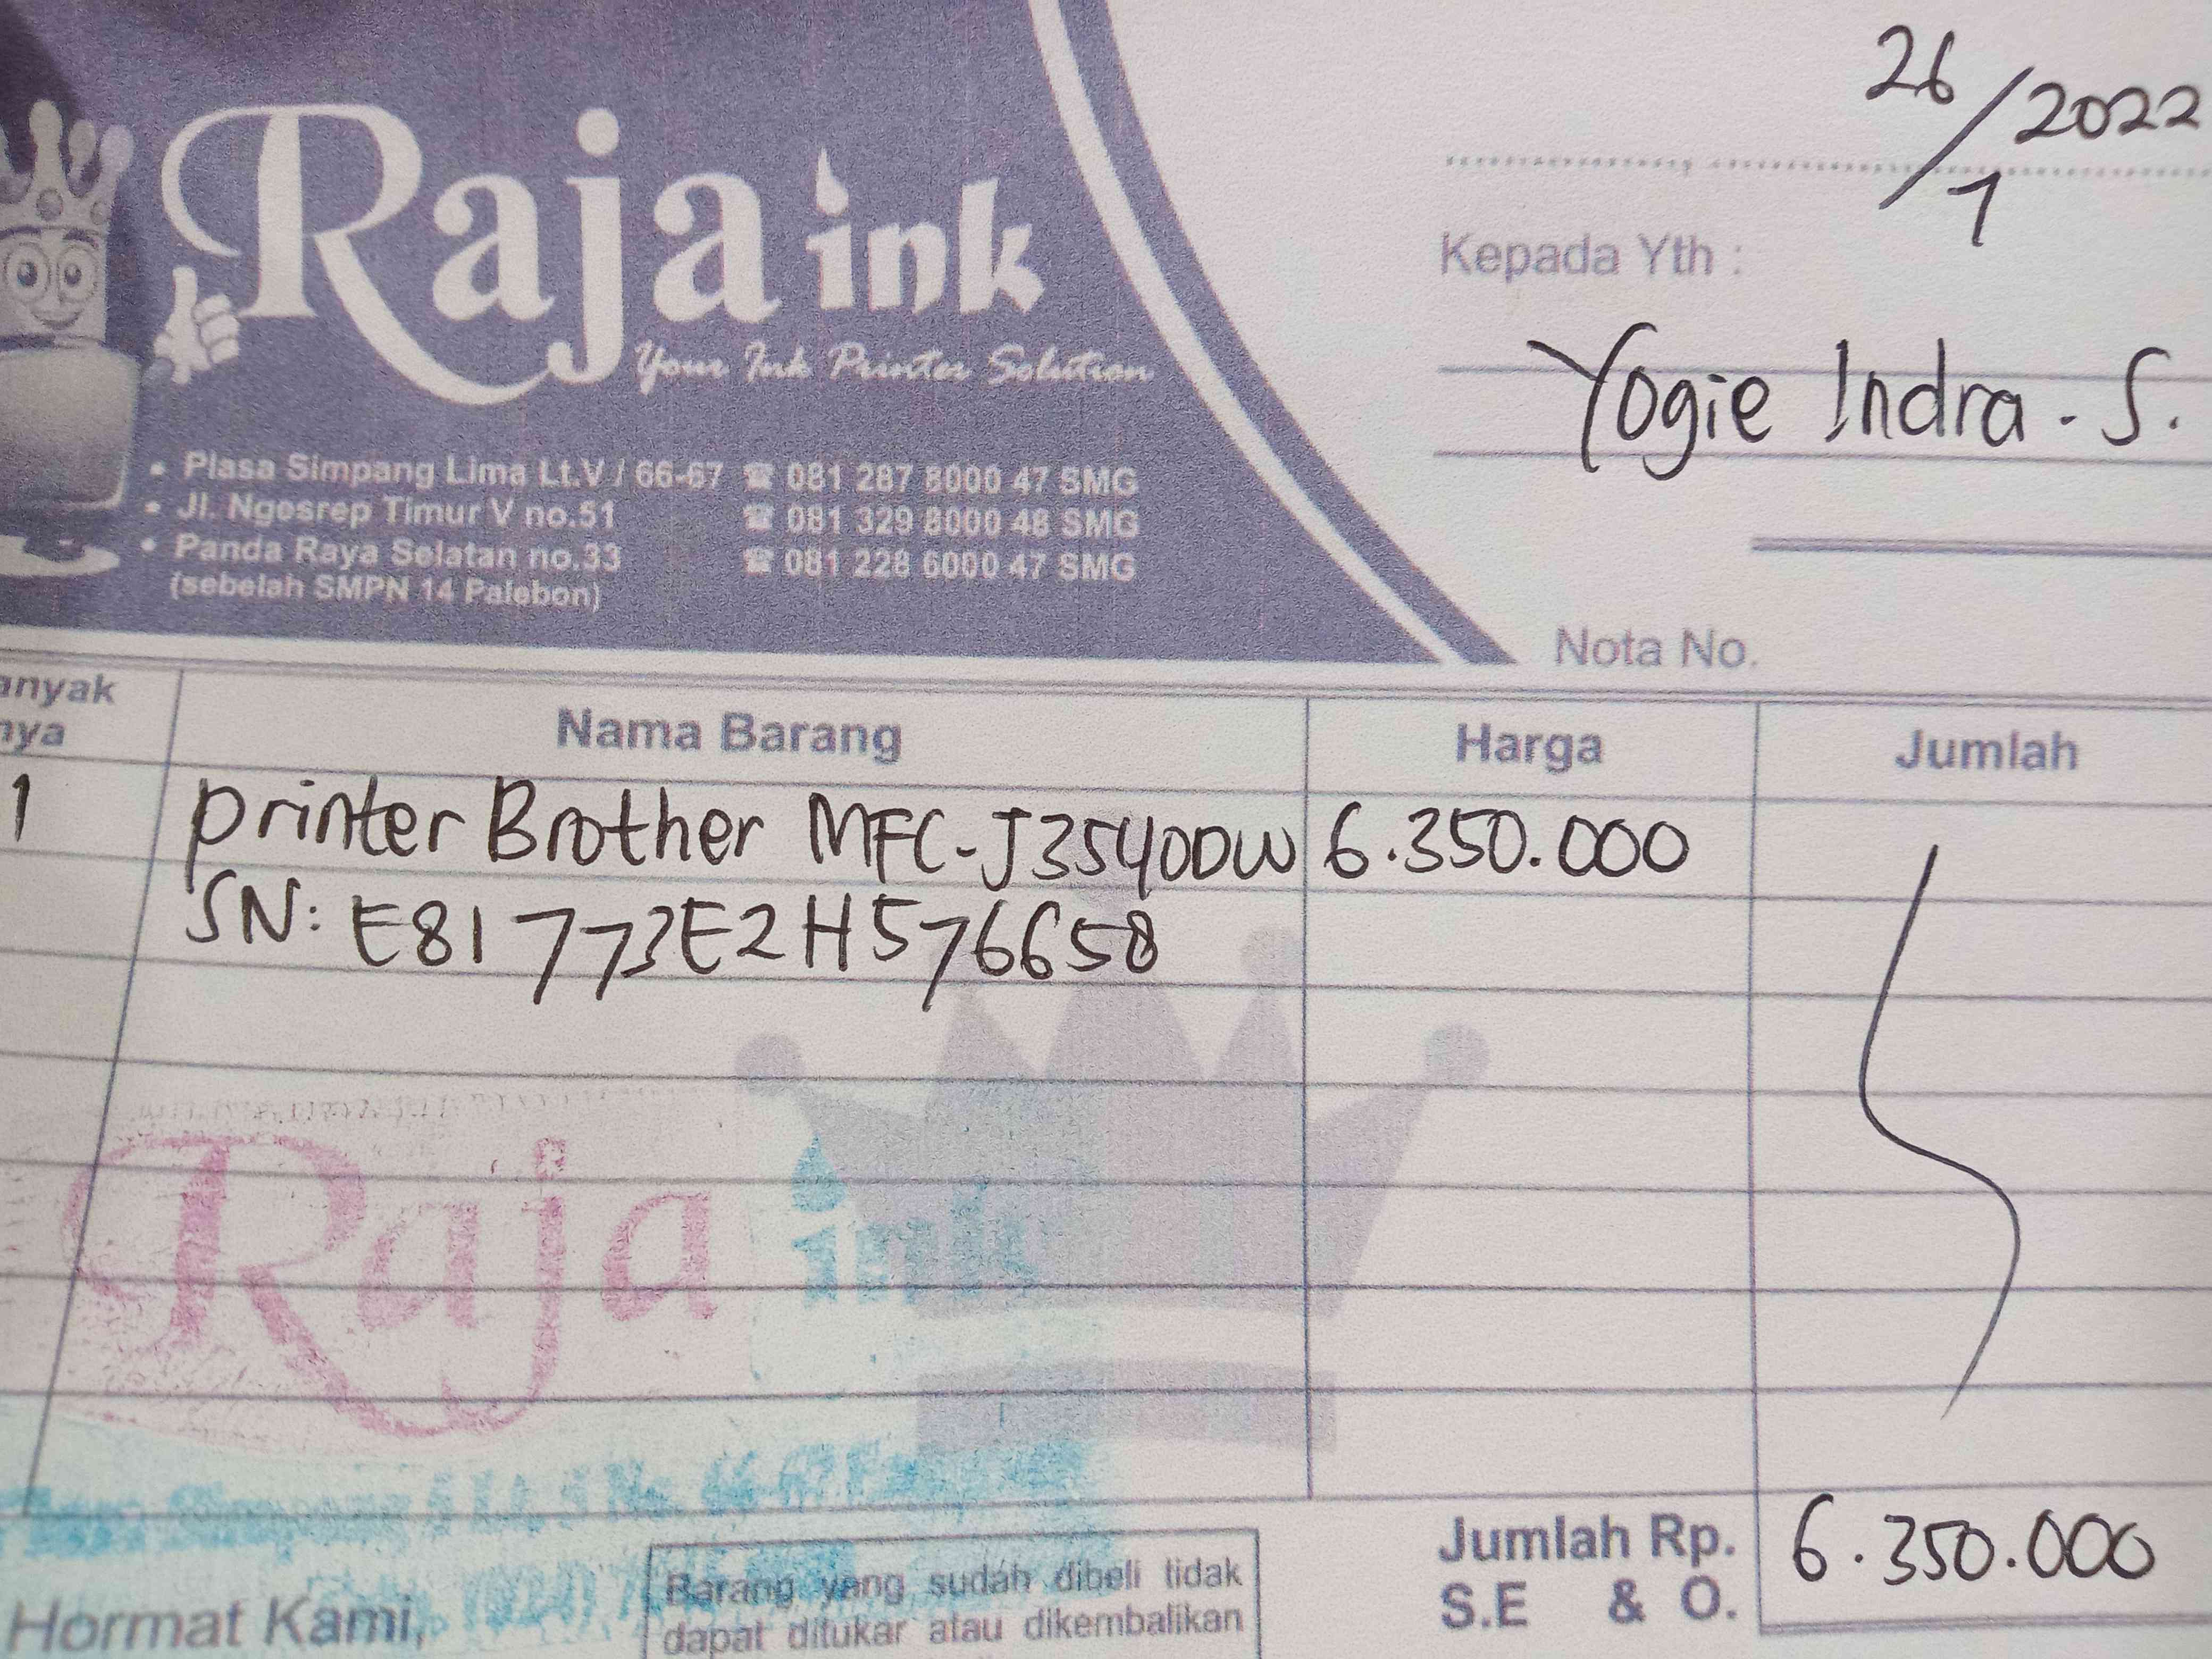 Raja ink
Your Ink Printer Solution
• Plasa Simpang Lima Lt.V / 66-67 ☎ 081 287 8000 47 SMG
• Jl. Ngesrep Timur V no.51 ☎ 081 329 8000 48 SMG
• Panda Raya Selatan no.33 ☎ 081 228 6000 47 SMG
(sebelah SMPN 14 Palebon)
26/1/2022
Kepada Yth :
Yogie Indra - S.
Nota No.
anyak
nya
Nama Barang
Harga
Jumlah
1 printer Brother MFC-J3540DW 6.350.000
SN: E81773E2H576658
Raja ink
Jumlah Rp. 6.350.000
S.E & O.
Hormat Kami,
Barang yang sudah dibeli tidak
dapat ditukar atau dikembalikan